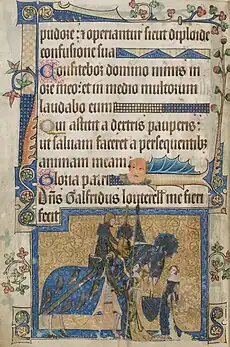 pudore : et operiantur sicut diploide
confusione sua
Confitebor domino nimis in
ore meo: et in medio multorum
laudabo eum
Qui astitit a dextris pauperis :
ut saluam faceret a persequentibz
animam meam
Gloria patri
Dns Galfridus louterell me fieri
fecit